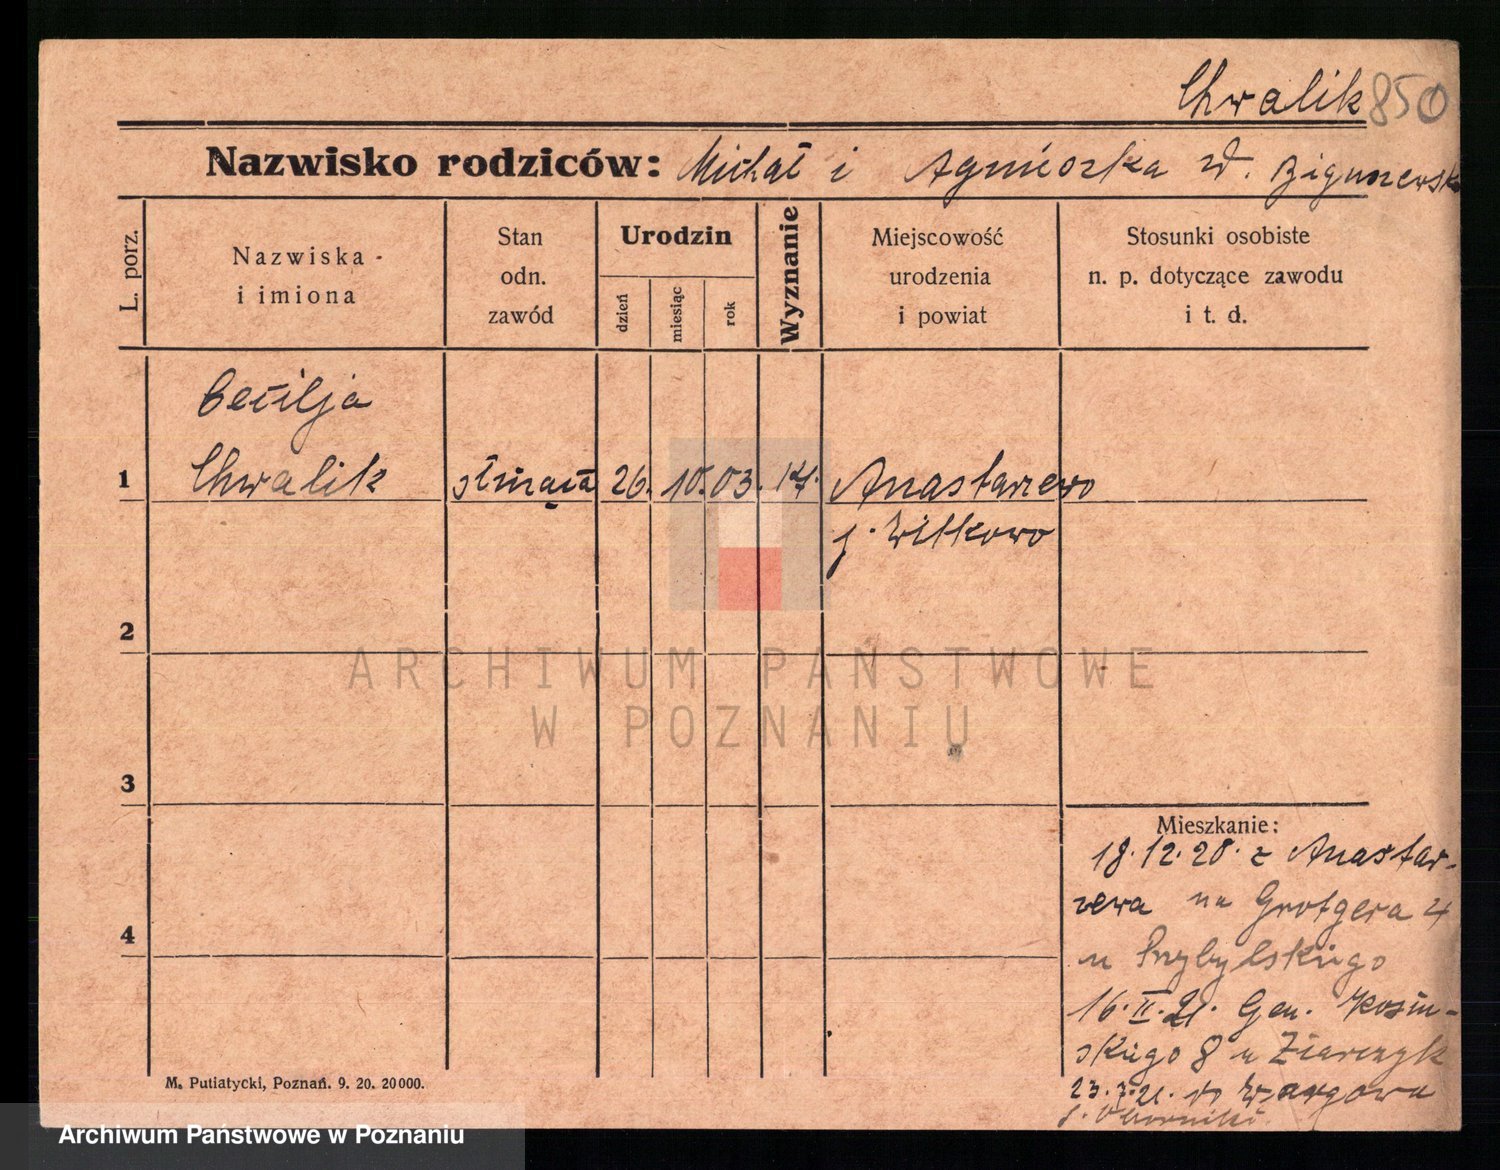 Chwalik 850
Nazwisko rodziców: Michał i Agnieszka zd.
L. porz.
Nazwiska
i imiona
Stan
odn.
zawód
Urodzin
dzień
miesiąc
rok
Wyznanie
Miejscowość
urodzenia
i powiat
Stosunki osobiste
n. p. dotyczące zawodu
i t. d.
Cecilja
1 Chwalik służąca 26. 10. 03. kt. Anastazewo
p. Witkowo
2
ARCHIWUM PAŃSTWOWE
W POZNANIU
3
Mieszkanie:
18.12.20. z Anasta-
zewa na Grotgera 4
4
u Przybylskiego
16.II.21. Gen. Kosiń-
skiego 8 u Ziarczyk
23.3.21. do Wargowa
p. Oborniki.
M. Putiatycki, Poznań. 9. 20. 20000.
Archiwum Państwowe w Poznaniu